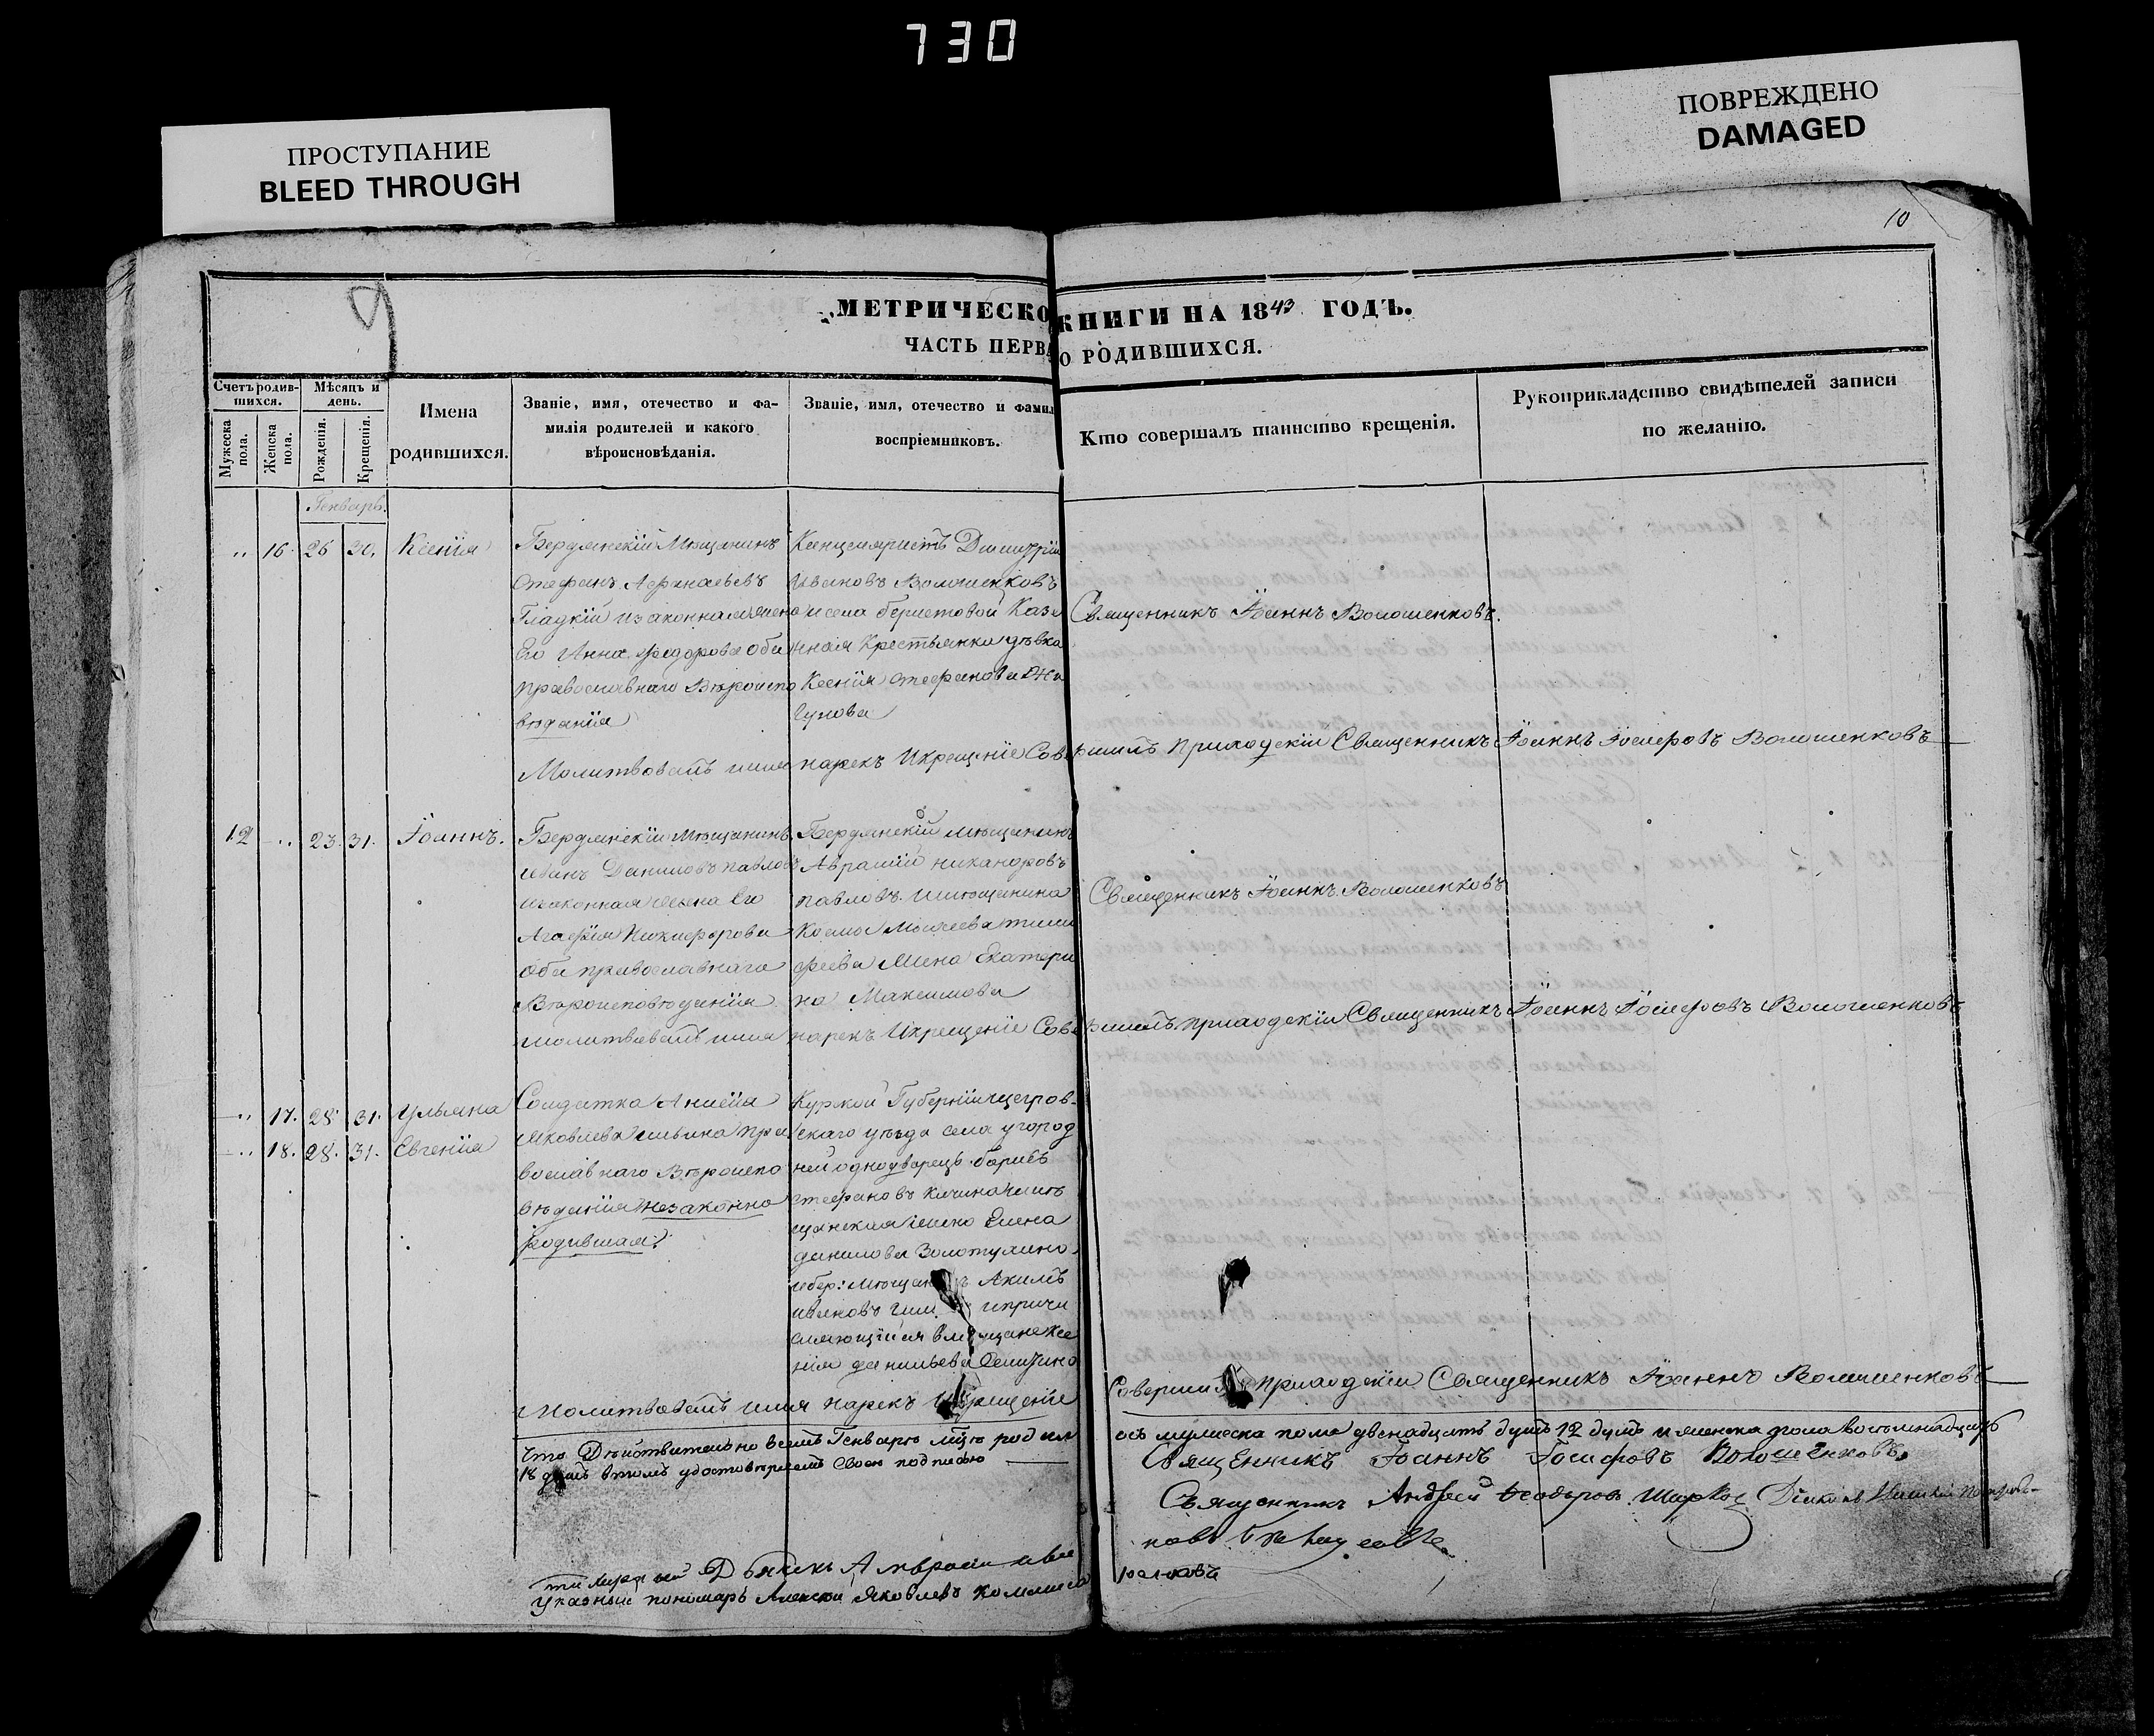 730
ПРОСТУПАНИЕ
BLEED THROUGH
ПОВРЕЖДЕНО
DAMAGED
10
9
МЕТРИЧЕСКО КНИГИ НА 1843 ГОДЪ.
ЧАСТЬ ПЕРВА О РОДИВШИХСЯ.
Счетъ родив-
шихся.
Мужеска
пола.
Женска
пола.
Мѣсяцъ и
день.
Рожденія.
Крещенія.
Имена
родившихся.
Званіе, имя, отечество и фа-
милія родителей и какого
вѣроисповѣданія.
Званіе, имя, отечество и фамил
воспріемниковъ.
Кто совершалъ таинство крещенія.
Рукоприкладство свидѣтелей записи
по желанію.
Генварь.
16. 26 30. Ксенія
Бердянскій Мѣщанинъ
Стефанъ Афанасьевъ
Гладкій изаконная жена
Его Анна Федорова оба
православнаго Вѣроиспо
вѣданія
Канцеляристъ Димитрій
Ивановъ Волошенковъ
исела берестовой Казе
нная Крестьянка дѣвка
Ксенія стефанова
гунова
Священникъ Іоаннъ Волошенковъ.
Молитвовалъ имя нарекъ Икрещеніе Совершилъ приходскій Священникъ Іоаннъ Іосифовъ Волошенковъ
12 23. 31. Іоаннъ.
Бердянскій Мѣщанинъ
Иванъ Даниловъ павловъ
изаконная жена Его
Агафія Никифорова
оба православнаго
Вѣроисповѣданія
Бердянскій мѣщанинъ
Аврамій никаноровъ
павловъ. имѣщанина
Космы Моисеева тимо
феева Жена Екатери
на Максимова
Священникъ Іоаннъ Волошенковъ
молитвовалъ имя нарекъ Икрещеніе Совершилъ приходскій Священникъ Іоаннъ Іосифовъ Волошенковъ
17. 28 31. Ульяна
18. 28. 31. Евгенія
Солдатка Анисія
Яковлева ильина пра
вославнаго Вѣроиспо
вѣданія незаконно
родившая:
Курской Губерніи щегров-
скаго уѣзда села угород
ней однодворецъ борисъ
стефановъ
щанская жена Елена
данилова Золотухина
ибер: мѣщан Акимъ
ивановъ
ксе
нія данильева
Молитвовалъ имя нарекъ Икрещеніе
Соверши приходскій Священникъ Іоаннъ Волошенковъ
Что Дѣйствительно всемъ Генварѣ мцѣ родил
ось мужеска пола двенадцать душъ 12 душъ и женска пола восѣмнадцать
18 душъ втомъ удостовѣряемъ Своею подписью
Священникъ Іоаннъ Іосифовъ Волошенковъ.
Священникъ Андрей Феодоров
Дьячекъ Амвросій
Указный пономарь Алексѣй Яковлевъ